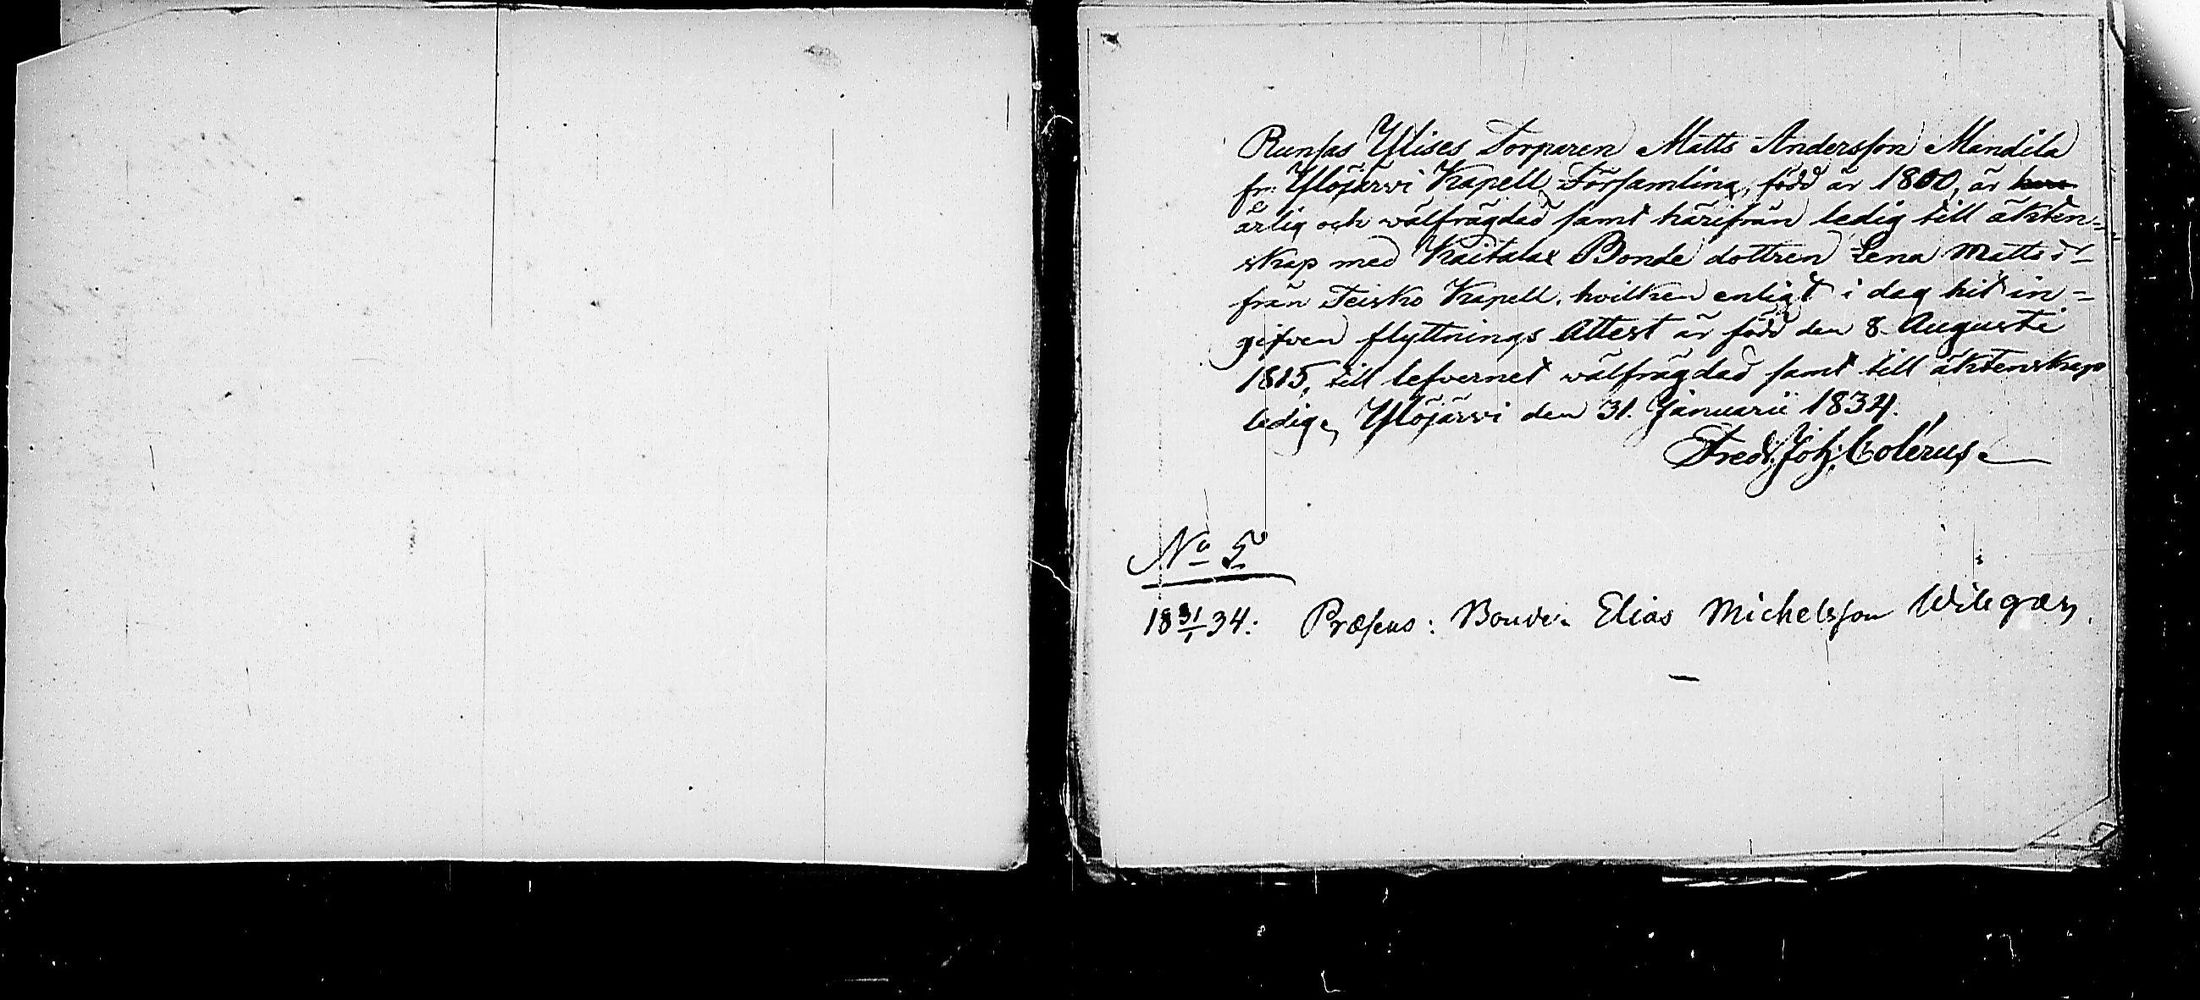 Runsas Ylises Torparen Matts Andersson Mandila
fr: Ylöjärvi Kapell Församling, född år 1800, är
ärlig och wälfrägdad samt härifrån ledig till äkten=
skap med Kaitalax Bonde dottren Lena Matts dr
från Teisko Kapell, hvilken enligt i dag hit in=
gifven flyttnings Attest är född den 8 Augusti
1815, till lefvernet wälfrägdad samt till äktenskap
ledig, Ylöjärvi den 31. Januarii 1834.
Fredr. Joh: Colérus.
No 5
18 31/1 34: Præsens: Bonden Elias Michelsson